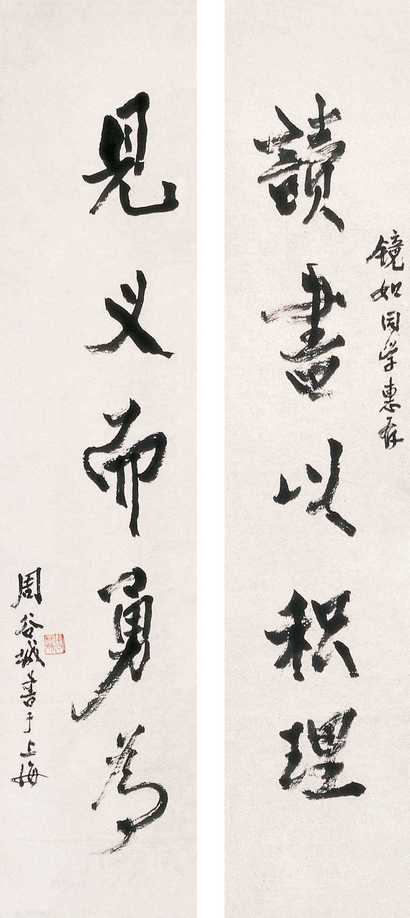 镜如同学惠存
讀書以积理
見义而勇為
周谷城書于上海